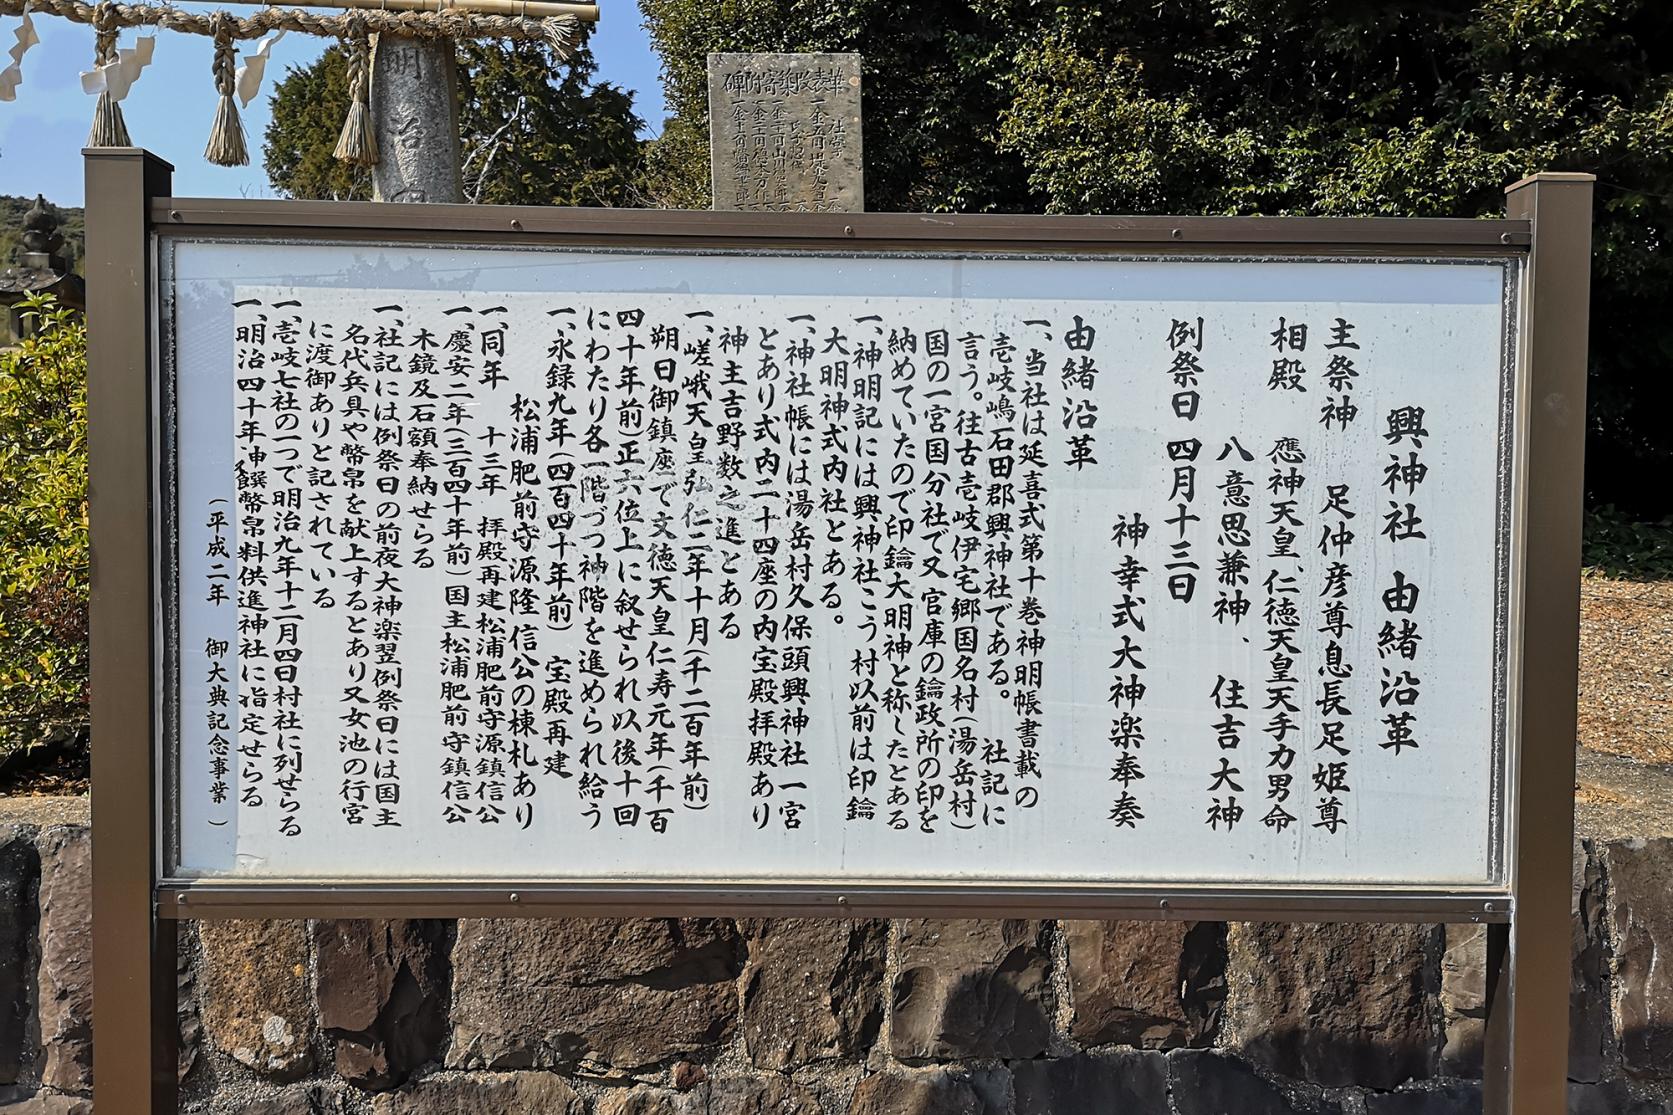 興神社 由緒沿革
主祭神 足仲彦尊息長足姫尊
相殿 應神天皇、仁徳天皇天手力男命
八意思兼神、 住吉大神
例祭日 四月十三日
神幸式大神楽奉奏
由緒沿革
一、当社は延喜式第十巻神明帳書載の
壱岐嶋石田郡興神社である。 社記に
言う。往古壱岐伊宅郷国名村(湯岳村)
国の一宮国分社で又官庫の鑰政所の印を
納めていたので印鑰大明神と称したとある
一、神明記には興神社こう村以前は印鑰
大明神式内社とある。
一、神社帳には湯岳村久保頭興神社一宮
とあり式内二十四座の内宝殿拝殿あり
神主吉野数之進とある
一、嵯峨天皇弘仁二年十月(千二百年前)
朔日御鎮座で文徳天皇仁寿元年(千百
四十年前)正六位上に叙せられ以後十回
にわたり各一階づつ神階を進められ給う
一、永録九年(四百四十年前) 宝殿再建
松浦肥前守源隆信公の棟札あり
一、同年 十三年 拝殿再建松浦肥前守源鎮信公
一、慶安二年(三百四十年前)国主松浦肥前守鎮信公
木鏡及石額奉納せらる
一、社記には例祭日の前夜大神楽翌例祭日には国主
名代兵具や幣帛を献上するとあり又女池の行宮
に渡御ありと記されている
一、壱岐七社の一つで明治九年十二月四日村社に列せらる
一、明治四十年神饌幣帛料供進神社に指定せらる
(平成二年 御大典記念事業)
明治
華表改築寄附碑